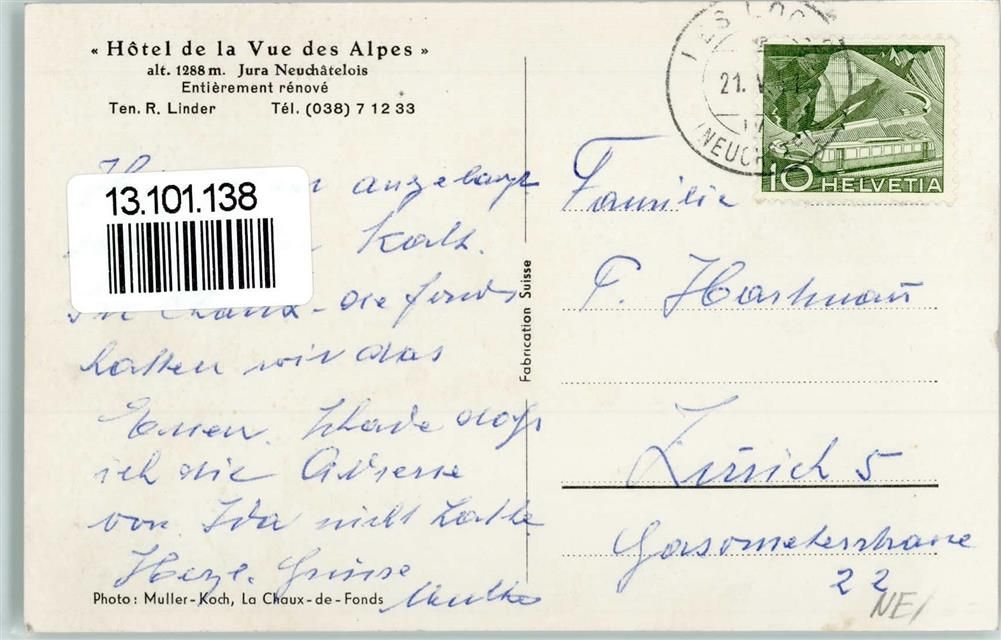 « Hôtel de la Vue des Alpes »
alt. 1288 m. Jura Neuchâtelois
Entièrement rénové
Ten. R. Linder Tél. (038) 7 12 33
13.101.138
angelangt
Kalt.
In Chaux-de fonds
hatten wir das
Essen. Schade dass
ich die Adresse
von Ida nicht hatte
Herzl. Grüsse
Photo: Muller-Koch, La Chaux-de-Fonds
Fabrication Suisse
LES LOG
21. V
(NEUCH
10 HELVETIA
Familie
F. Hartmann
Zürich 5
Gasometerstrasse
22
NE/